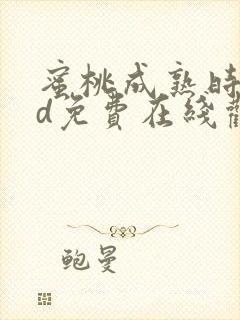 蜜桃成熟時
d免費在綫觀
鲍曼